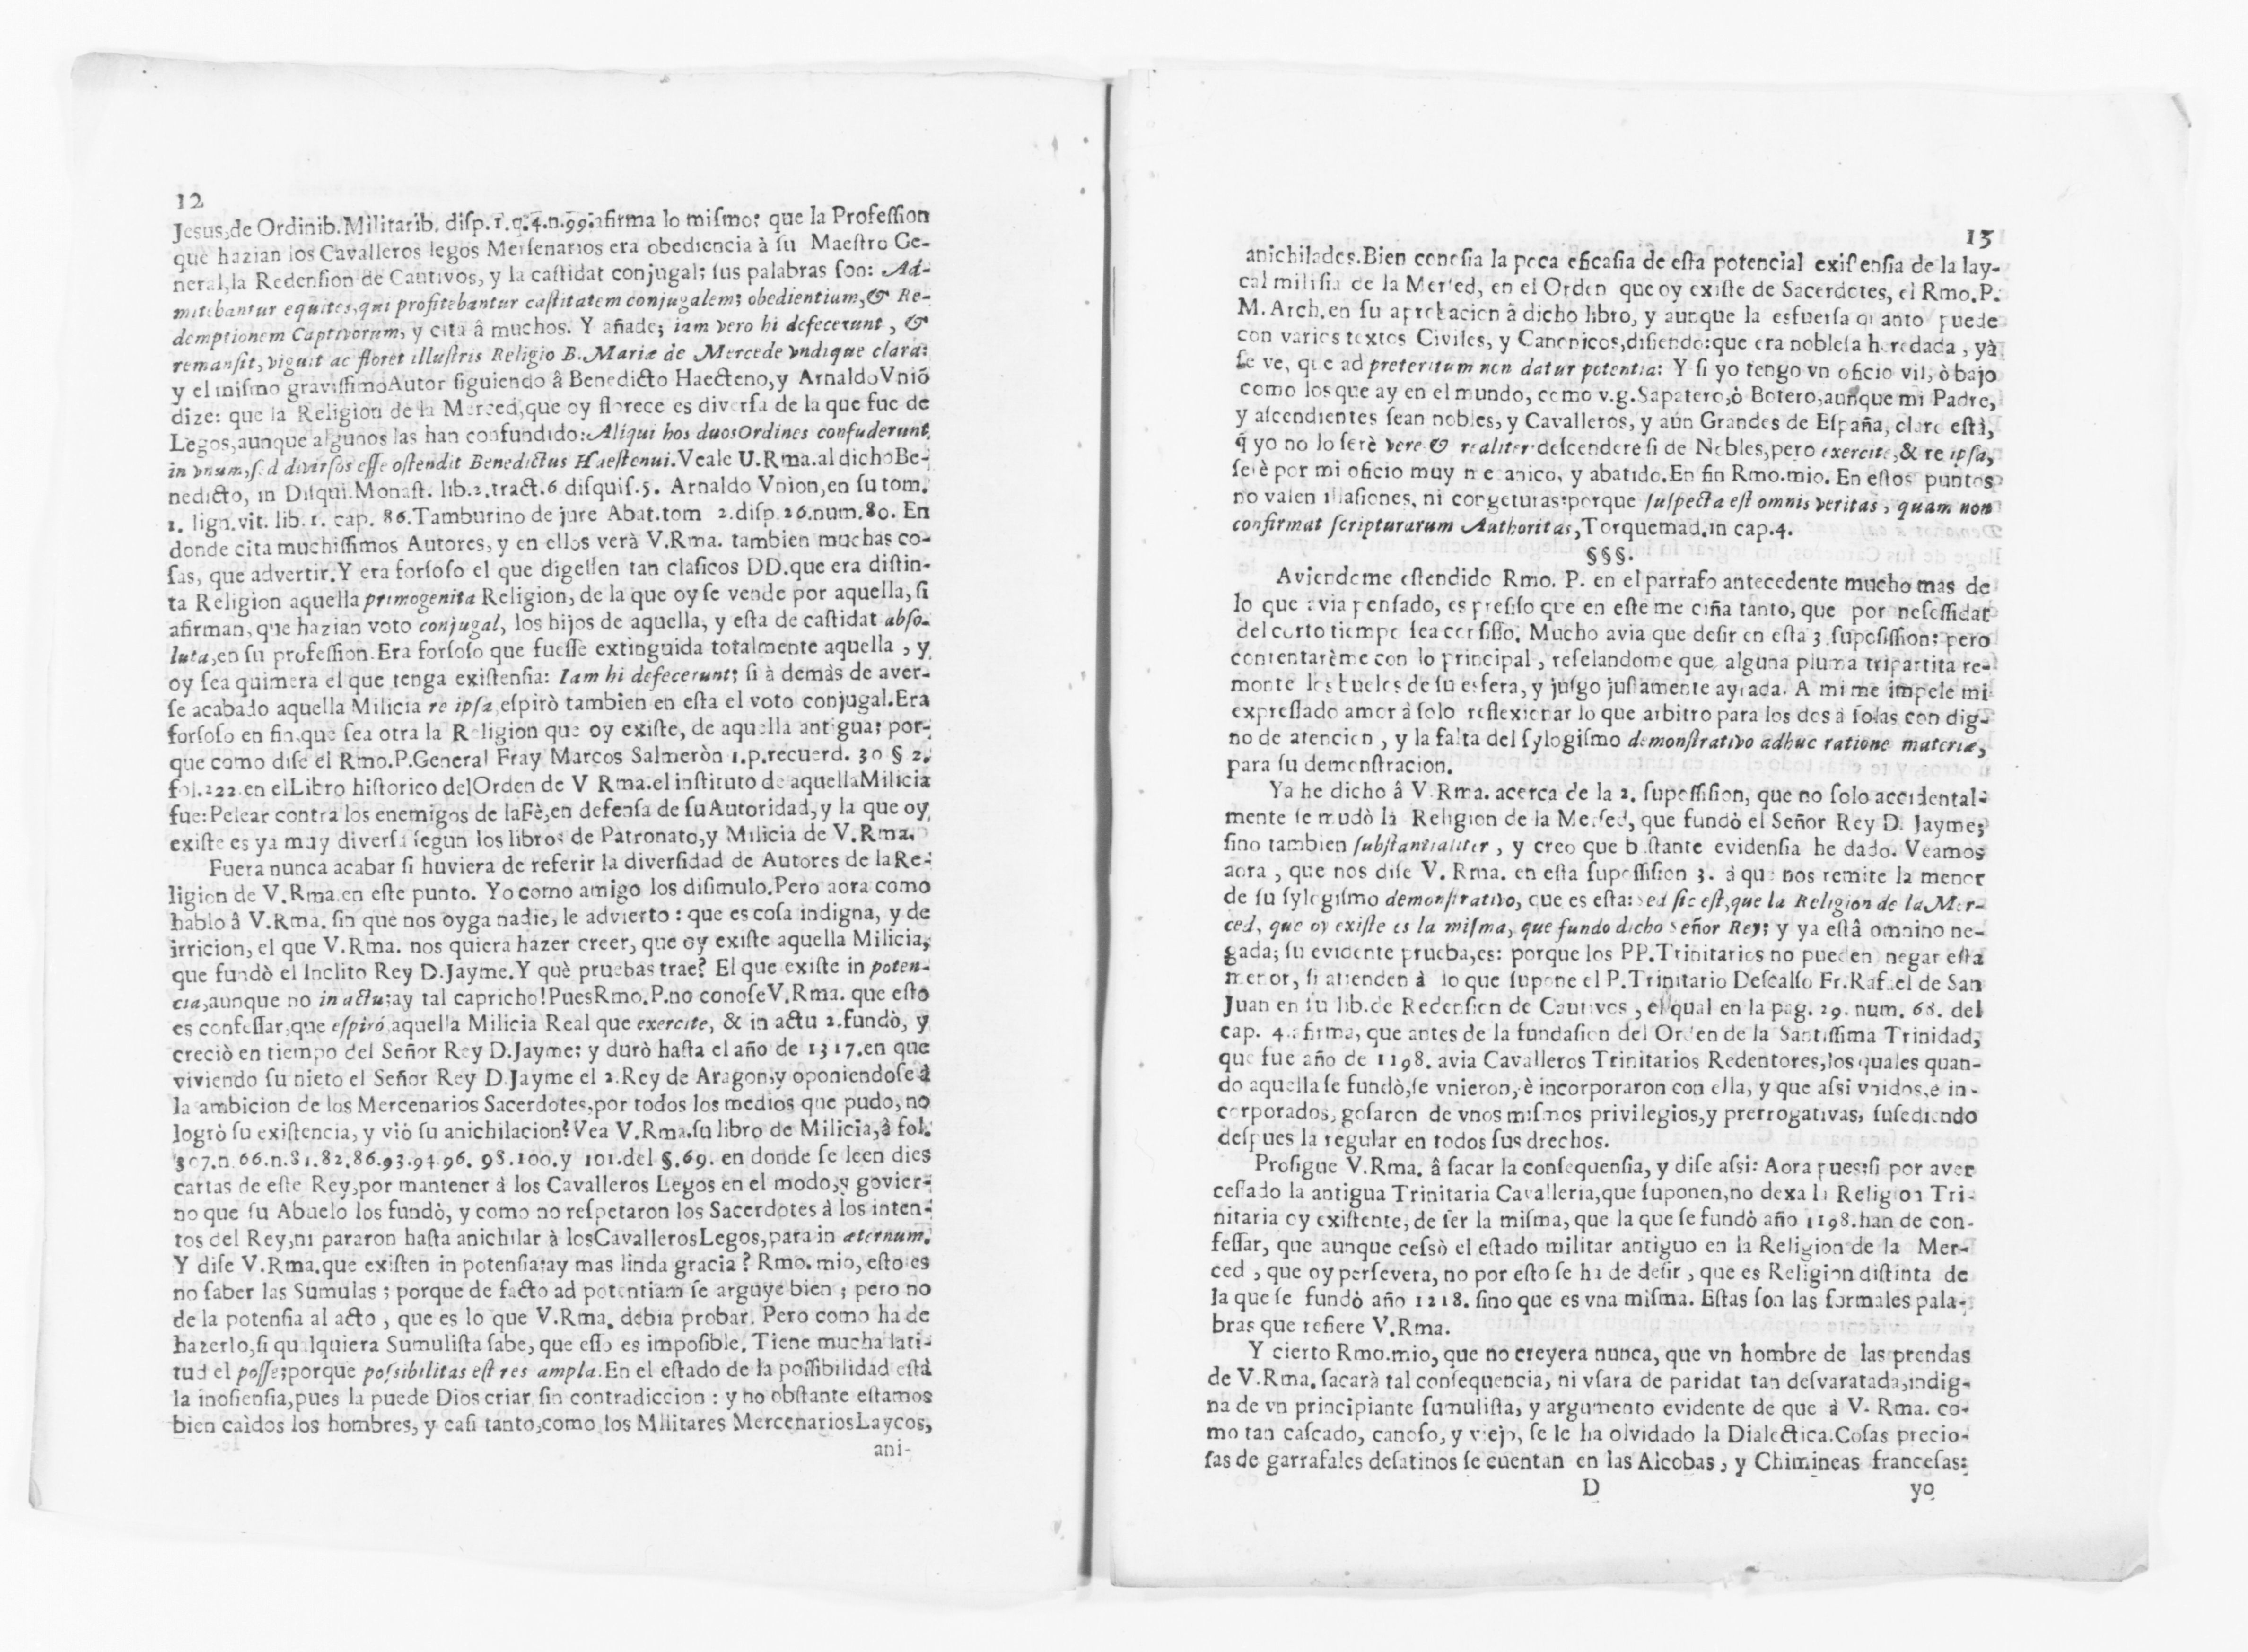 12
Jesus,de Ordinib.Militarib. diſp.1.q.4.n.99.afirma lo miſmo: que la Profeſſion
que hazian los Cavalleros legos Merſenarios era obediencia à ſu Maeſtro Ge-
neral,la Redenſion de Cautivos, y la caſtidat conjugal; ſus palabras ſon: Ad-
mitebantur equites,qui profitebantur caſtitatem conjugalem; obedientium,& Re-
demptionem Captivorum, y cita â muchos. Y añade; iam vero hi defecerunt, &
remanſit, viguit ac floret illuſtris Religio B. Mariæ de Mercede vndique clara:
y el miſmo graviſſimo Autor ſiguiendo â Benedicto Haecteno,y Arnaldo Vniō
dize: que la Religion de la Merced,que oy florece es diverſa de la que fue de
Legos,aunque algunos las han confundido: Aliqui hos duos Ordines confuderunt
in vnum, ſed diverſos eſſe oſtendit Benedictus Haeſtenui.Veale U.Rma.al dicho Be-
nedicto, in Diſqui.Monaſt. lib.2.tract.6 diſquiſ.5. Arnaldo Vnion,en ſu tom.
1. lign.vit. lib.1. cap. 86.Tamburino de jure Abat.tom 2.diſp.26.num.80. En
donde cita muchiſſimos Autores, y en ellos verà V.Rma. tambien muchas co-
ſas, que advertir.Y era forſoſo el que digeſſen tan claſicos DD.que era diſtin-
ta Religion aquella primogenita Religion, de la que oy ſe vende por aquella, ſi
afirman, que hazian voto conjugal, los hijos de aquella, y eſta de caſtidat abſo-
luta,en ſu profeſſion.Era forſoſo que fueſſe extinguida totalmente aquella, y
oy ſea quimera el que tenga exiſtenſia: Iam hi defecerunt; ſi à demàs de aver-
ſe acabado aquella Milicia re ipſa,eſpirò tambien en eſta el voto conjugal.Era
forſoſo en fin,que ſea otra la Religion que oy exiſte, de aquella antigua; por-
que como diſe el Rmo.P.General Fray Marcos Salmeròn 1.p.recuerd. 30 § 2.
fol.222.en el Libro hiſtorico del Orden de V Rma.el inſtituto de aquella Milicia
fue:Pelear contra los enemigos de la Fè,en defenſa de ſu Autoridad, y la que oy
exiſte es ya muy diverſa ſegun los libros de Patronato,y Milicia de V.Rma.
Fuera nunca acabar ſi huviera de referir la diverſidad de Autores de la Re-
ligion de V.Rma.en eſte punto. Yo como amigo los diſimulo.Pero aora como
hablo â V.Rma. ſin que nos oyga nadie, le advierto : que es coſa indigna, y de
irricion, el que V.Rma. nos quiera hazer creer, que oy exiſte aquella Milicia,
que fundò el Inclito Rey D.Jayme.Y què pruebas trae? El que exiſte in poten-
cia,aunque no in actu;ay tal capricho!Pues Rmo.P.no conoſe V.Rma. que eſto
es confeſſar,que eſpiró aquella Milicia Real que exercite, & in actu 2.fundò, y
creciò en tiempo del Señor Rey D.Jayme; y durò haſta el año de 1317.en que
viviendo ſu nieto el Señor Rey D.Jayme el 2.Rey de Aragon,y oponiendoſe à
la ambicion de los Mercenarios Sacerdotes,por todos los medios que pudo, no
logrò ſu exiſtencia, y viò ſu anichilacion? Vea V.Rma.ſu libro de Milicia,à fol.
307.n.66.n.81.82.86.93.94.96. 98.100.y 101.del §.69. en donde ſe leen dies
cartas de eſte Rey,por mantener à los Cavalleros Legos en el modo,y govier-
no que ſu Abuelo los fundò, y como no reſpetaron los Sacerdotes à los inten-
tos del Rey,ni pararon haſta anichilar à los Cavalleros Legos,para in æternum.
Y diſe V.Rma.que exiſten in potenſia:ay mas linda gracia? Rmo.mio, eſto es
no ſaber las Sumulas ; porque de facto ad potentiam ſe arguye bien ; pero no
de la potenſia al acto , que es lo que V.Rma. debia probar. Pero como ha de
hazerlo,ſi qualquiera Sumuliſta ſabe, que eſſo es impoſible. Tiene mucha lati-
tud el poſſe;porque poſsibilitas eſt res ampla.En el eſtado de la poſſibilidad eſtà
la inoſienſia,pues la puede Dios criar ſin contradiccion : y no obſtante eſtamos
bien caìdos los hombres, y caſi tanto,como los Militares Mercenarios Laycos,
ani-
13
anichilados.Bien conoſia la poca eficaſia de eſta potencial exiſtenſia de la lay-
cal miliſia de la Merſed, en el Orden que oy exiſte de Sacerdotes, el Rmo.P.
M. Arch.en ſu aprobacion â dicho libro, y aunque la esfuerſa quanto puede
con varios textos Civiles, y Canonicos,diſiendo:que era nobleſa heredada , yà
ſe ve, que ad preteritum non datur potentia: Y ſi yo tengo vn oficio vil, ò bajo
como los que ay en el mundo, como v.g.Sapatero,ò Botero,aunque mi Padre,
y aſcendientes ſean nobles, y Cavalleros, y aún Grandes de Eſpaña, claro eſtà,
q̃ yo no lo ſerè vere & realiter deſcendere ſi de Nobles,pero exercite,& re ipſa,
ſerè por mi oficio muy mecanico, y abatido.En fin Rmo.mio. En eſtos puntos
no valen illaſiones, ni congeturas:porque ſuſpecta eſt omnis veritas, quam non
confirmat ſcripturarum Authoritas,Torquemad.in cap.4.
§§§.
Aviendome eſtendido Rmo. P. en el parrafo antecedente mucho mas de
lo que avia penſado, es preſiſo que en eſte me ciña tanto, que por neſeſſidat
del corto tiempo ſea conſiſſo. Mucho avia que deſir en eſta 3.ſupoſiſſion; pero
contentarème con lo principal , reſelandome que alguna pluma tripartita re-
monte los buelos de ſu esfera, y juſgo juſtamente ayrada. A mi me impele mi
expreſſado amor à ſolo reflexionar lo que arbitro para los dos à ſolas con dig-
no de atencion , y la falta del ſylogiſmo demonſtrativo adhuc ratione materiæ,
para ſu demonſtracion.
Ya he dicho â V.Rma. acerca de la 2. ſupoſſiſion, que no ſolo accidental-
mente ſe mudò la Religion de la Merſed, que fundò el Señor Rey D. Jayme;
ſino tambien ſubſtantialiter , y creo que baſtante evidenſia he dado. Veamos
aora , que nos diſe V. Rma. en eſta ſupoſſiſion 3. à que nos remite la menor
de ſu ſylogiſmo demonſtrativo, que es eſta: ſed ſic eſt,que la Religion de la Mer-
ced, que oy exiſte es la miſma, que fundo dicho Señor Rey; y ya eſtâ omnino ne-
gada; ſu evidente prueba,es: porque los PP.Trinitarios no pueden negar eſta
menor, ſi atienden à lo que ſupone el P.Trinitario Deſcalſo Fr.Rafael de San
Juan en ſu lib.de Redenſion de Cautivos , el qual en la pag. 29. num. 68. del
cap. 4.afirma, que antes de la fundaſion del Orden de la Santiſſima Trinidad,
que fue año de 1198. avia Cavalleros Trinitarios Redentores,los quales quan-
do aquella ſe fundò,ſe vnieron, è incorporaron con ella, y que aſsi vnidos,e in-
corporados, goſaron de vnos miſmos privilegios,y prerrogativas, ſuſediendo
deſpues la regular en todos ſus drechos.
Proſigue V.Rma. â ſacar la conſequenſia, y diſe aſsi: Aora pues:ſi por aver
ceſſado la antigua Trinitaria Cavalleria,que ſuponen,no dexa la Religion Tri-
nitaria oy exiſtente, de ſer la miſma, que la que ſe fundò año 1198.han de con-
feſſar, que aunque ceſsò el eſtado militar antiguo en la Religion de la Mer-
ced , que oy perſevera, no por eſto ſe ha de deſir , que es Religion diſtinta de
la que ſe fundò año 1218. ſino que es vna miſma. Eſtas ſon las formales pala-
bras que refiere V.Rma.
Y cierto Rmo.mio, que no creyera nunca, que vn hombre de las prendas
de V.Rma. ſacarà tal conſequencia, ni vſara de paridat tan deſvaratada,indig-
na de vn principiante ſumuliſta, y argumento evidente de que à V. Rma. co-
mo tan caſcado, canoſo, y viejo, ſe le ha olvidado la Dialectica.Coſas precio-
ſas de garrafales deſatinos ſe cuentan en las Alcobas, y Chimineas franceſas:
D
yo